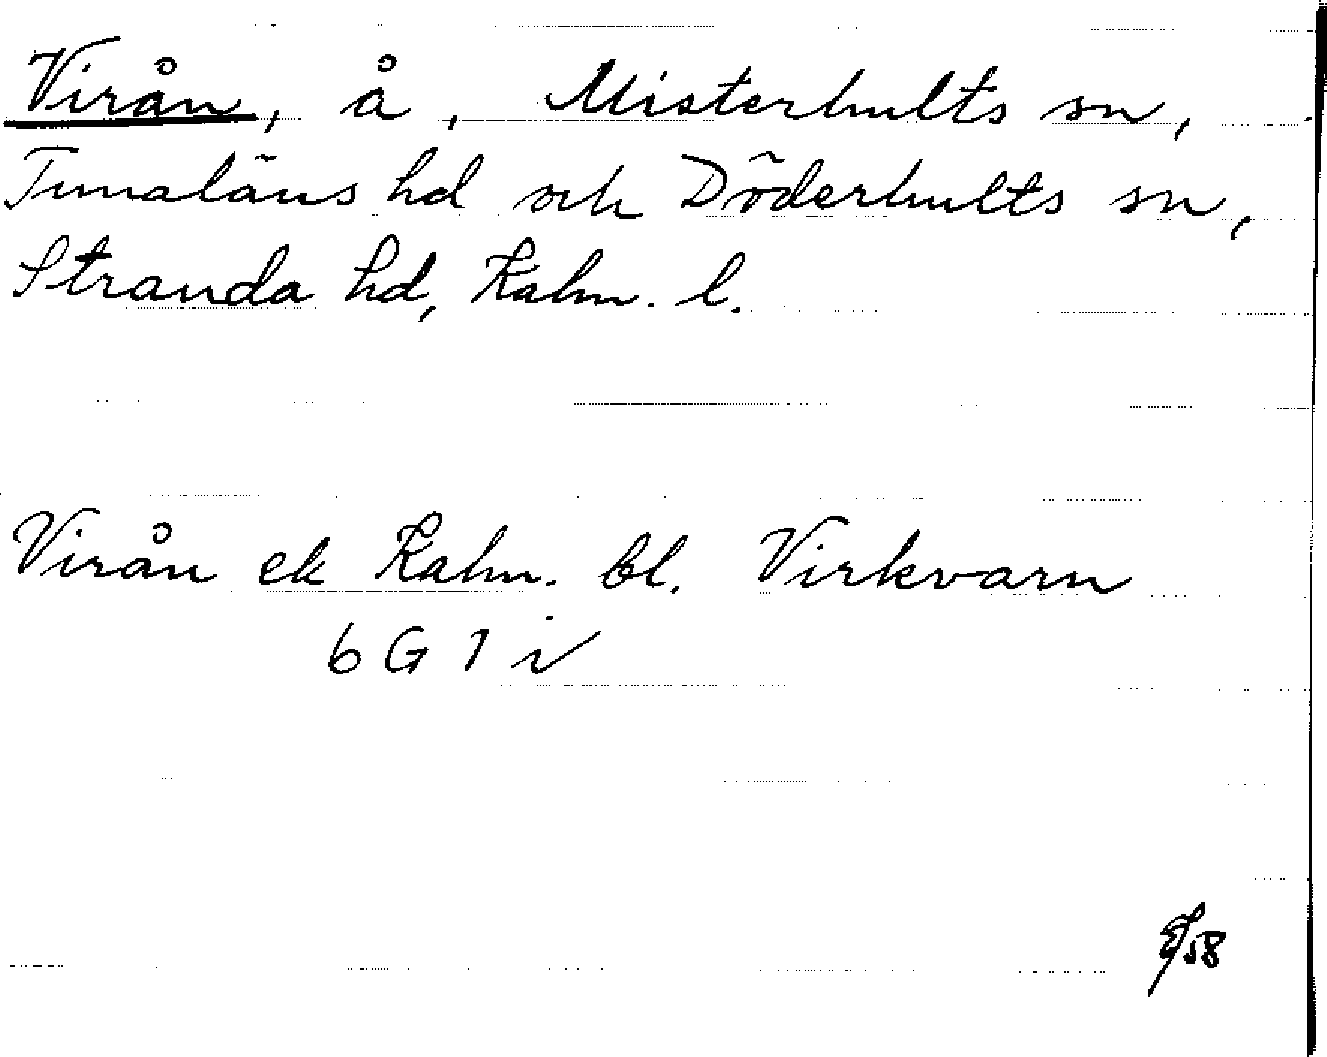 Virån, å, Misterhults sn,
Tunaläns hd och Döderhults sn,
Stranda hd, Kalm. l.
Virån ek Kalm. bl. Virkvarn
6 G 1 i
58